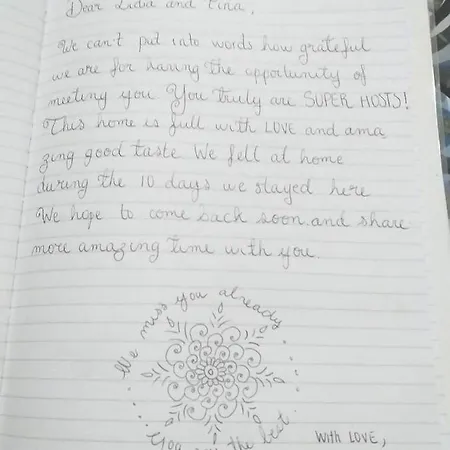 Dear Lidia and Tina,
We can't put into words how grateful
we are for having the opportunity of
meeting you You truly are SUPER HOSTS!
This home is full with LOVE and ama
zing good taste We fell at home
during the 10 days we stayed here
We hope to come back soon and share
more amazing time with you.
We miss you already
You are the best.
With LOVE,